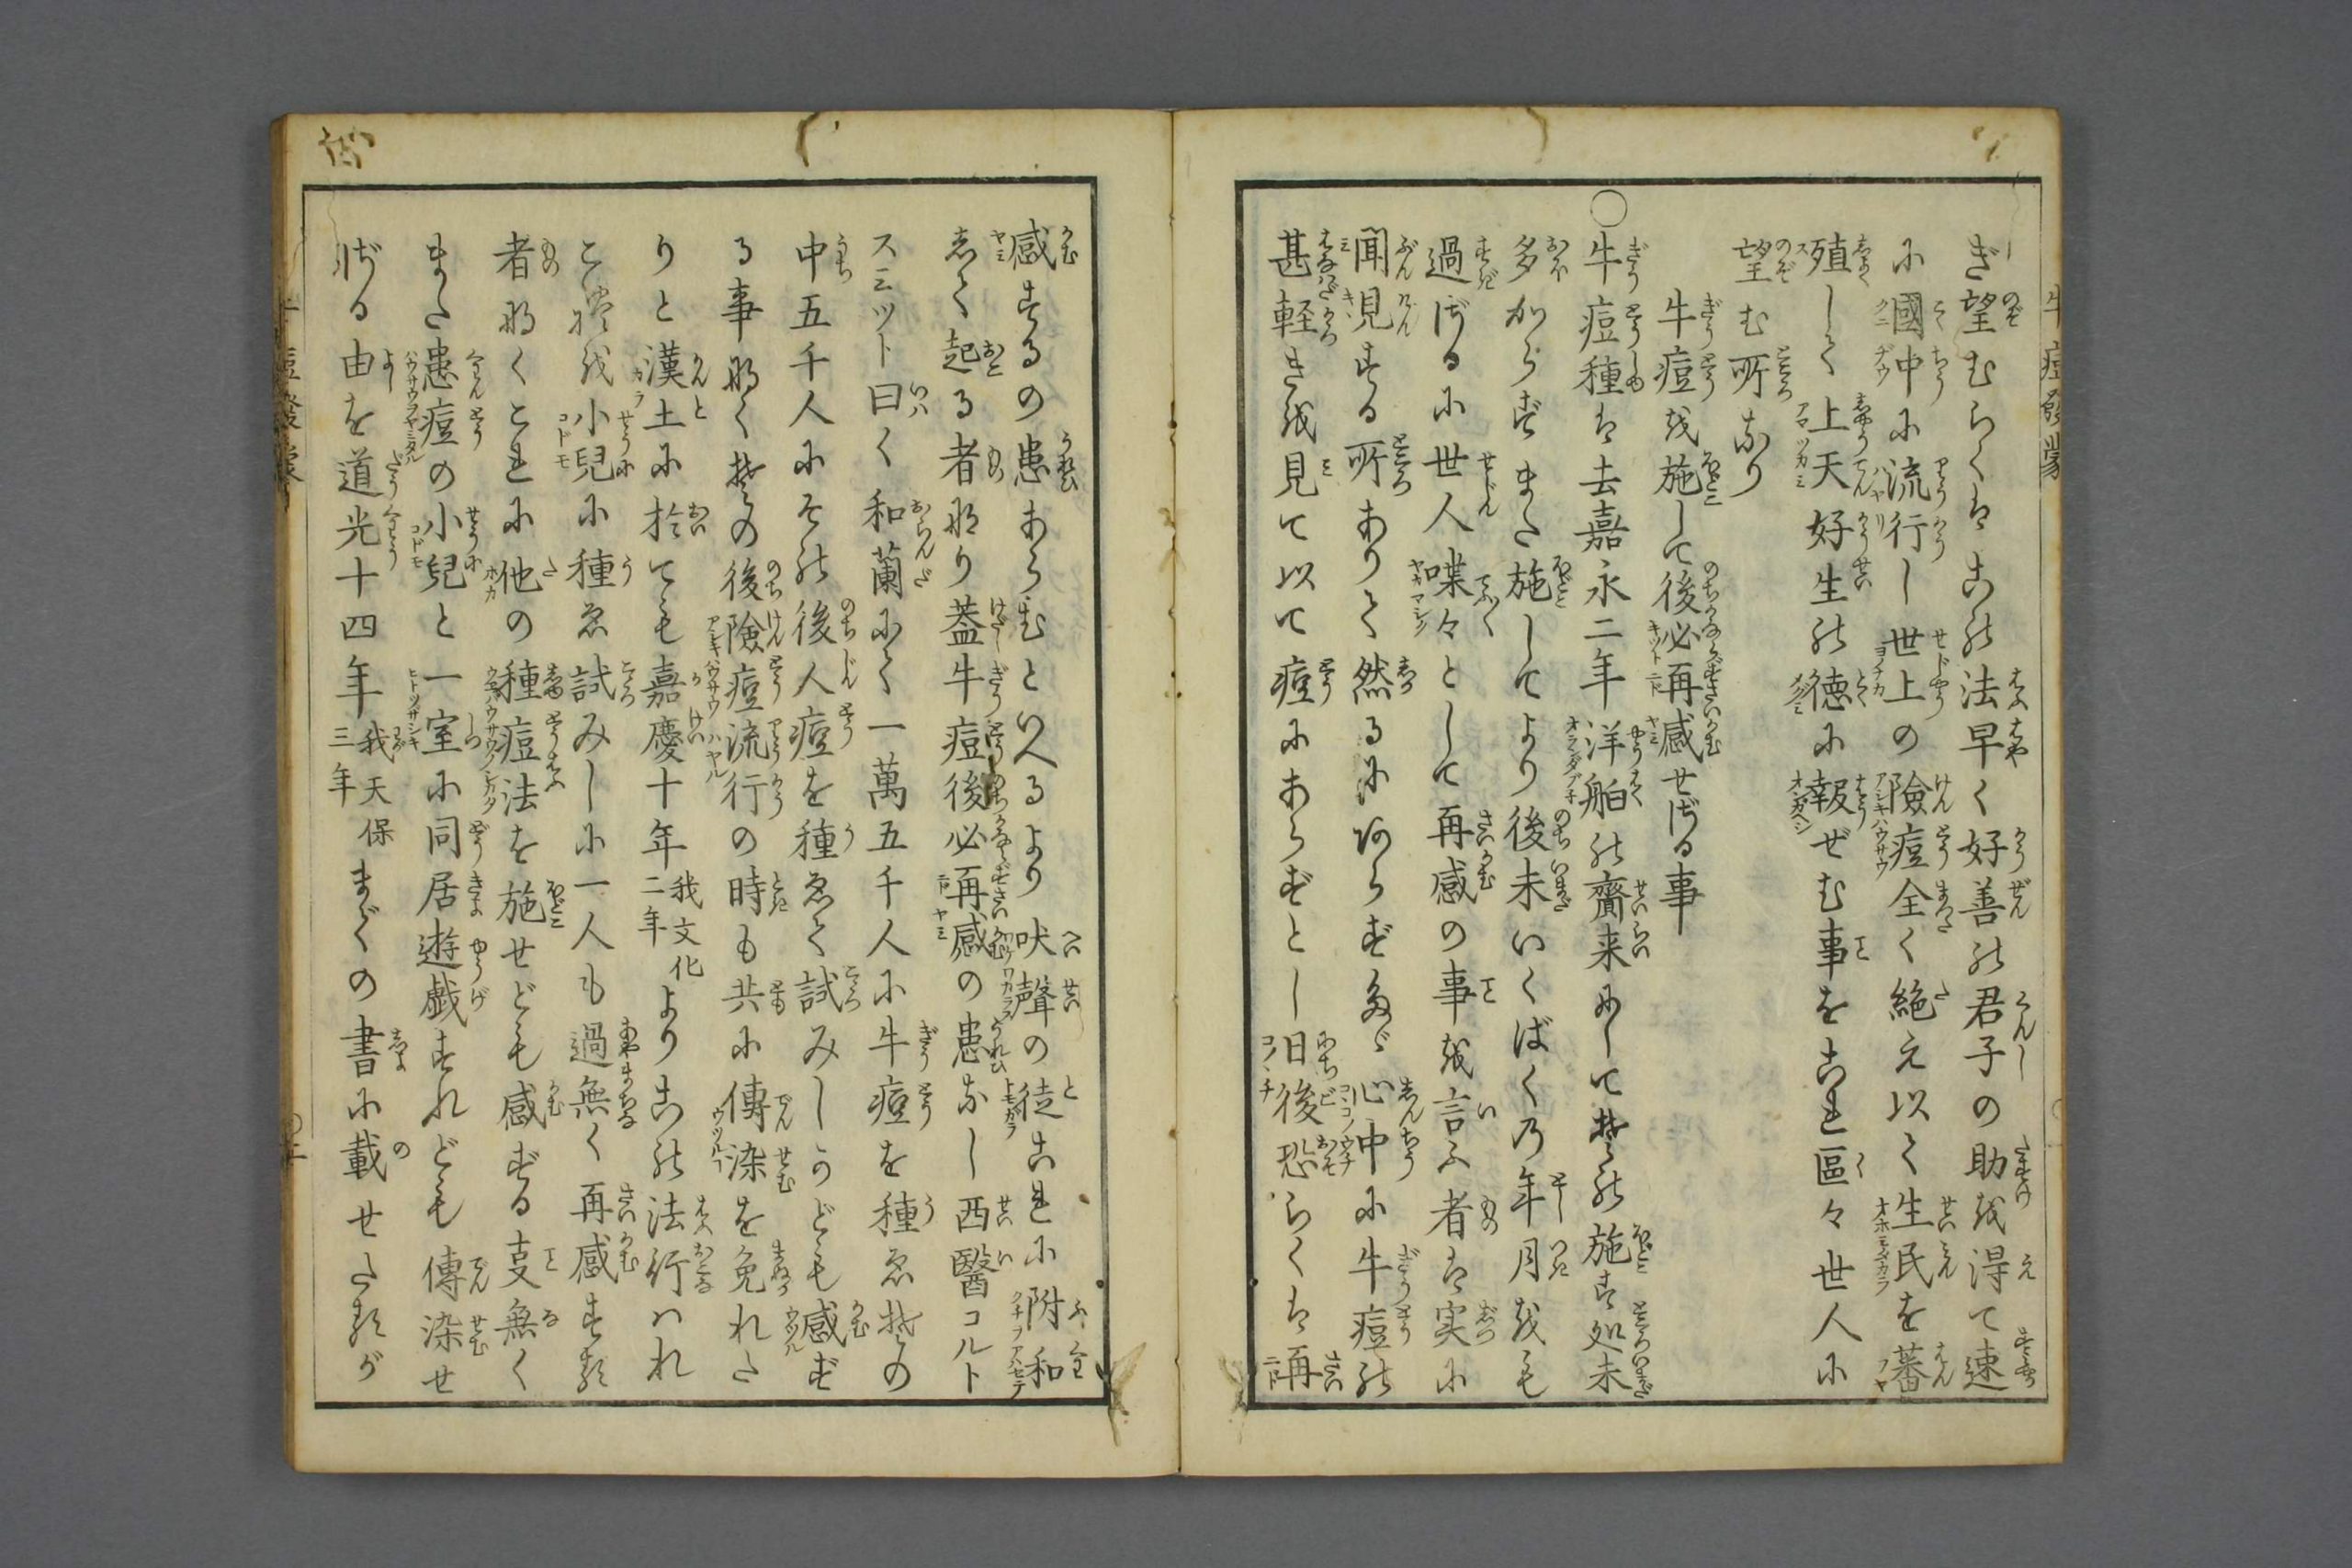 牛痘發蒙
ぎ望むらくは此の法早く好善の君子の助を得て速
に國中に流行し世上の險痘全く絶え以て生民を蕃
殖して上天好生の徳に報ぜむ事をこれ區々世人に
望む所なり
牛痘を施して後必再感せざる事
○牛痘種は去嘉永二年洋舶の齎来にして其の施す処未
多からずまた施してより後未いくばく乃年月をも
過ざるに世人喋々として再感の事を言ふ者は実に
聞見する所ありて然るにあらずたゞ心中に牛痘の
甚軽きを見て以て痘にあらずとし日後恐らくは再
感するの患あらむといへるより吠聲の徒これに附和
して起る者なり蓋牛痘後必再感の患なし西醫コルト
スミット曰く和蘭にて一萬五千人に牛痘を種ゑ其の
中五千人にその後人痘を種ゑて試みしかども感ず
る事なく其の後險痘流行の時も共に傳染を免れた
りと漢土に於ても嘉慶十年我文化二年より此の法行はれ
こ彼を小兒に種ゑ試みしに一人も過無く再感する
者なくこれに他の種痘法を施せども感ずる支無く
また患痘の小兒と一室に同居遊戯すれども傳染せ
ざる由を道光十四年我天保三年までの書に載せたるが
牛痘發蒙